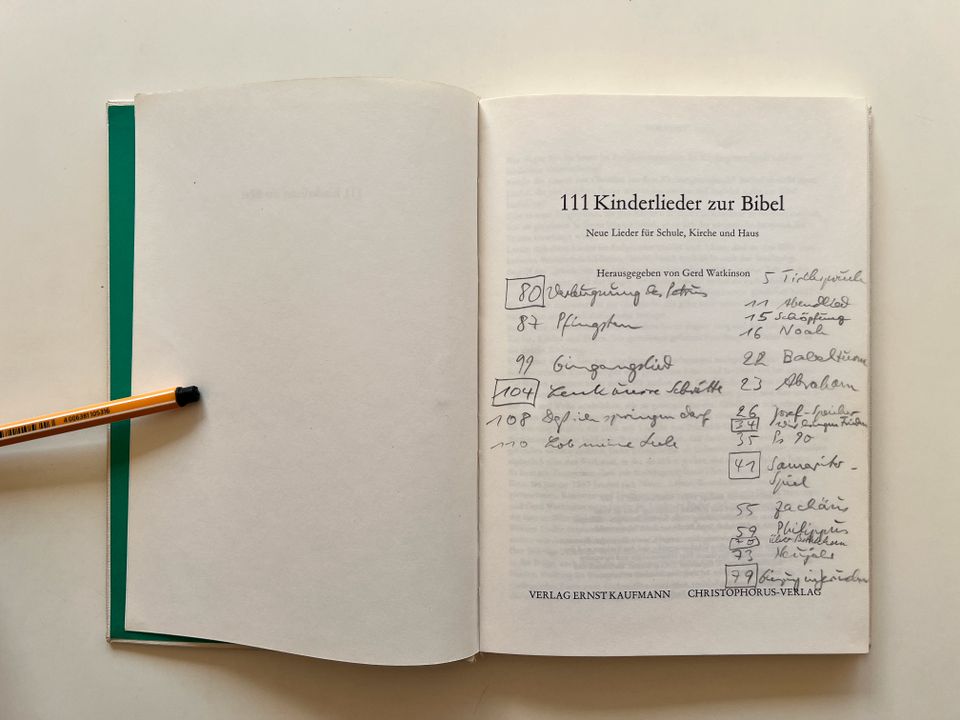 111 Kinderlieder zur Bibel
Neue Lieder für Schule, Kirche und Haus
Herausgegeben von Gerd Watkinson
80 Verleugnung des Petrus
87 Pfingsten
99 Eingangslied
104 Lenk unsre Schritte
108 Daß ich springen darf
110 Lob meine Seele
5 Tischspruch
11 Abendlied
15 Schöpfung
16 Noah
22 Babelturm
23 Abraham
26 Josef-Speicher
34 Wir bringen Frieden
35 Ps 90
41 Samariter-
Spiel
55 Zachäus
59 Philippus
70
73 Neujahr
79 Einzug in
VERLAG ERNST KAUFMANN CHRISTOPHORUS-VERLAG
4 006381 105316